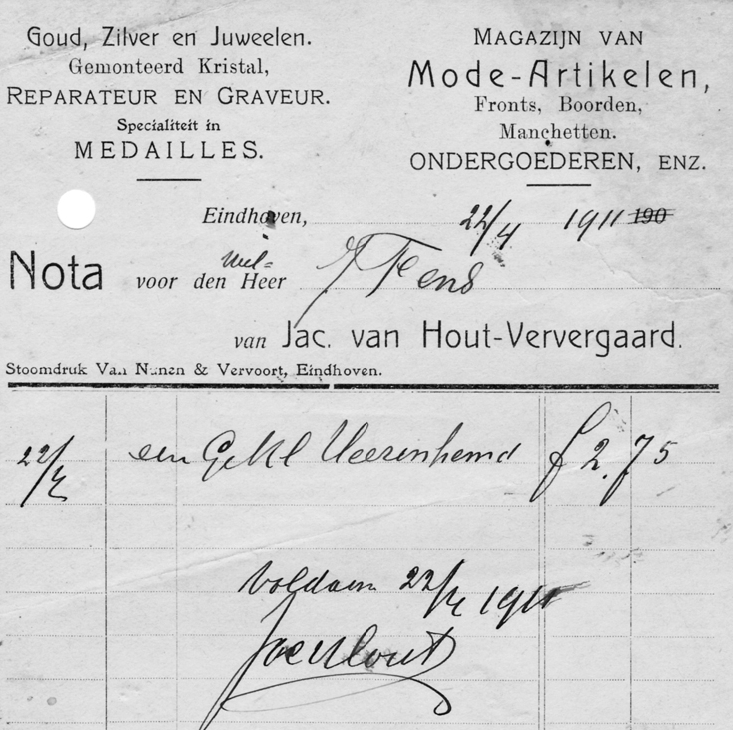 Goud, Zilver en Juweelen.
Gemonteerd Kristal,
REPARATEUR EN GRAVEUR.
Specialiteit in
MEDAILLES.
MAGAZIJN VAN
Mode-Artikelen,
Fronts, Boorden,
Manchetten.
ONDERGOEDEREN, ENZ.
Eindhoven, 22/4 1911 190
Nota voor den Heer Fens
van Jac. van Hout-Ververgaard.
Stoomdruk Van Nunen & Vervoort, Eindhoven.
22/4 een Gekl Heerenhemd f 2.75
Voldaan 22/4 1911
JacvHout